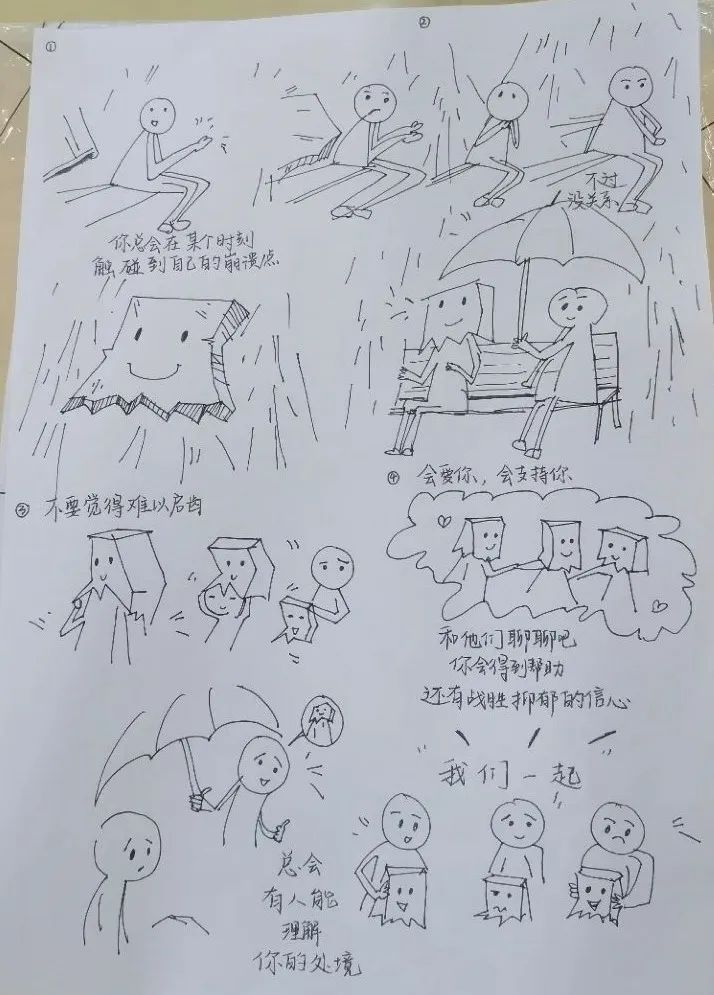 ①
你总会在某个时刻
触碰到自己的崩溃点
②
不过
没关系
③ 不要觉得难以启齿
总会
有人能
理解
你的处境
④ 会爱你，会支持你
和他们聊聊吧
你会得到帮助
还有战胜抑郁的信心
我们一起